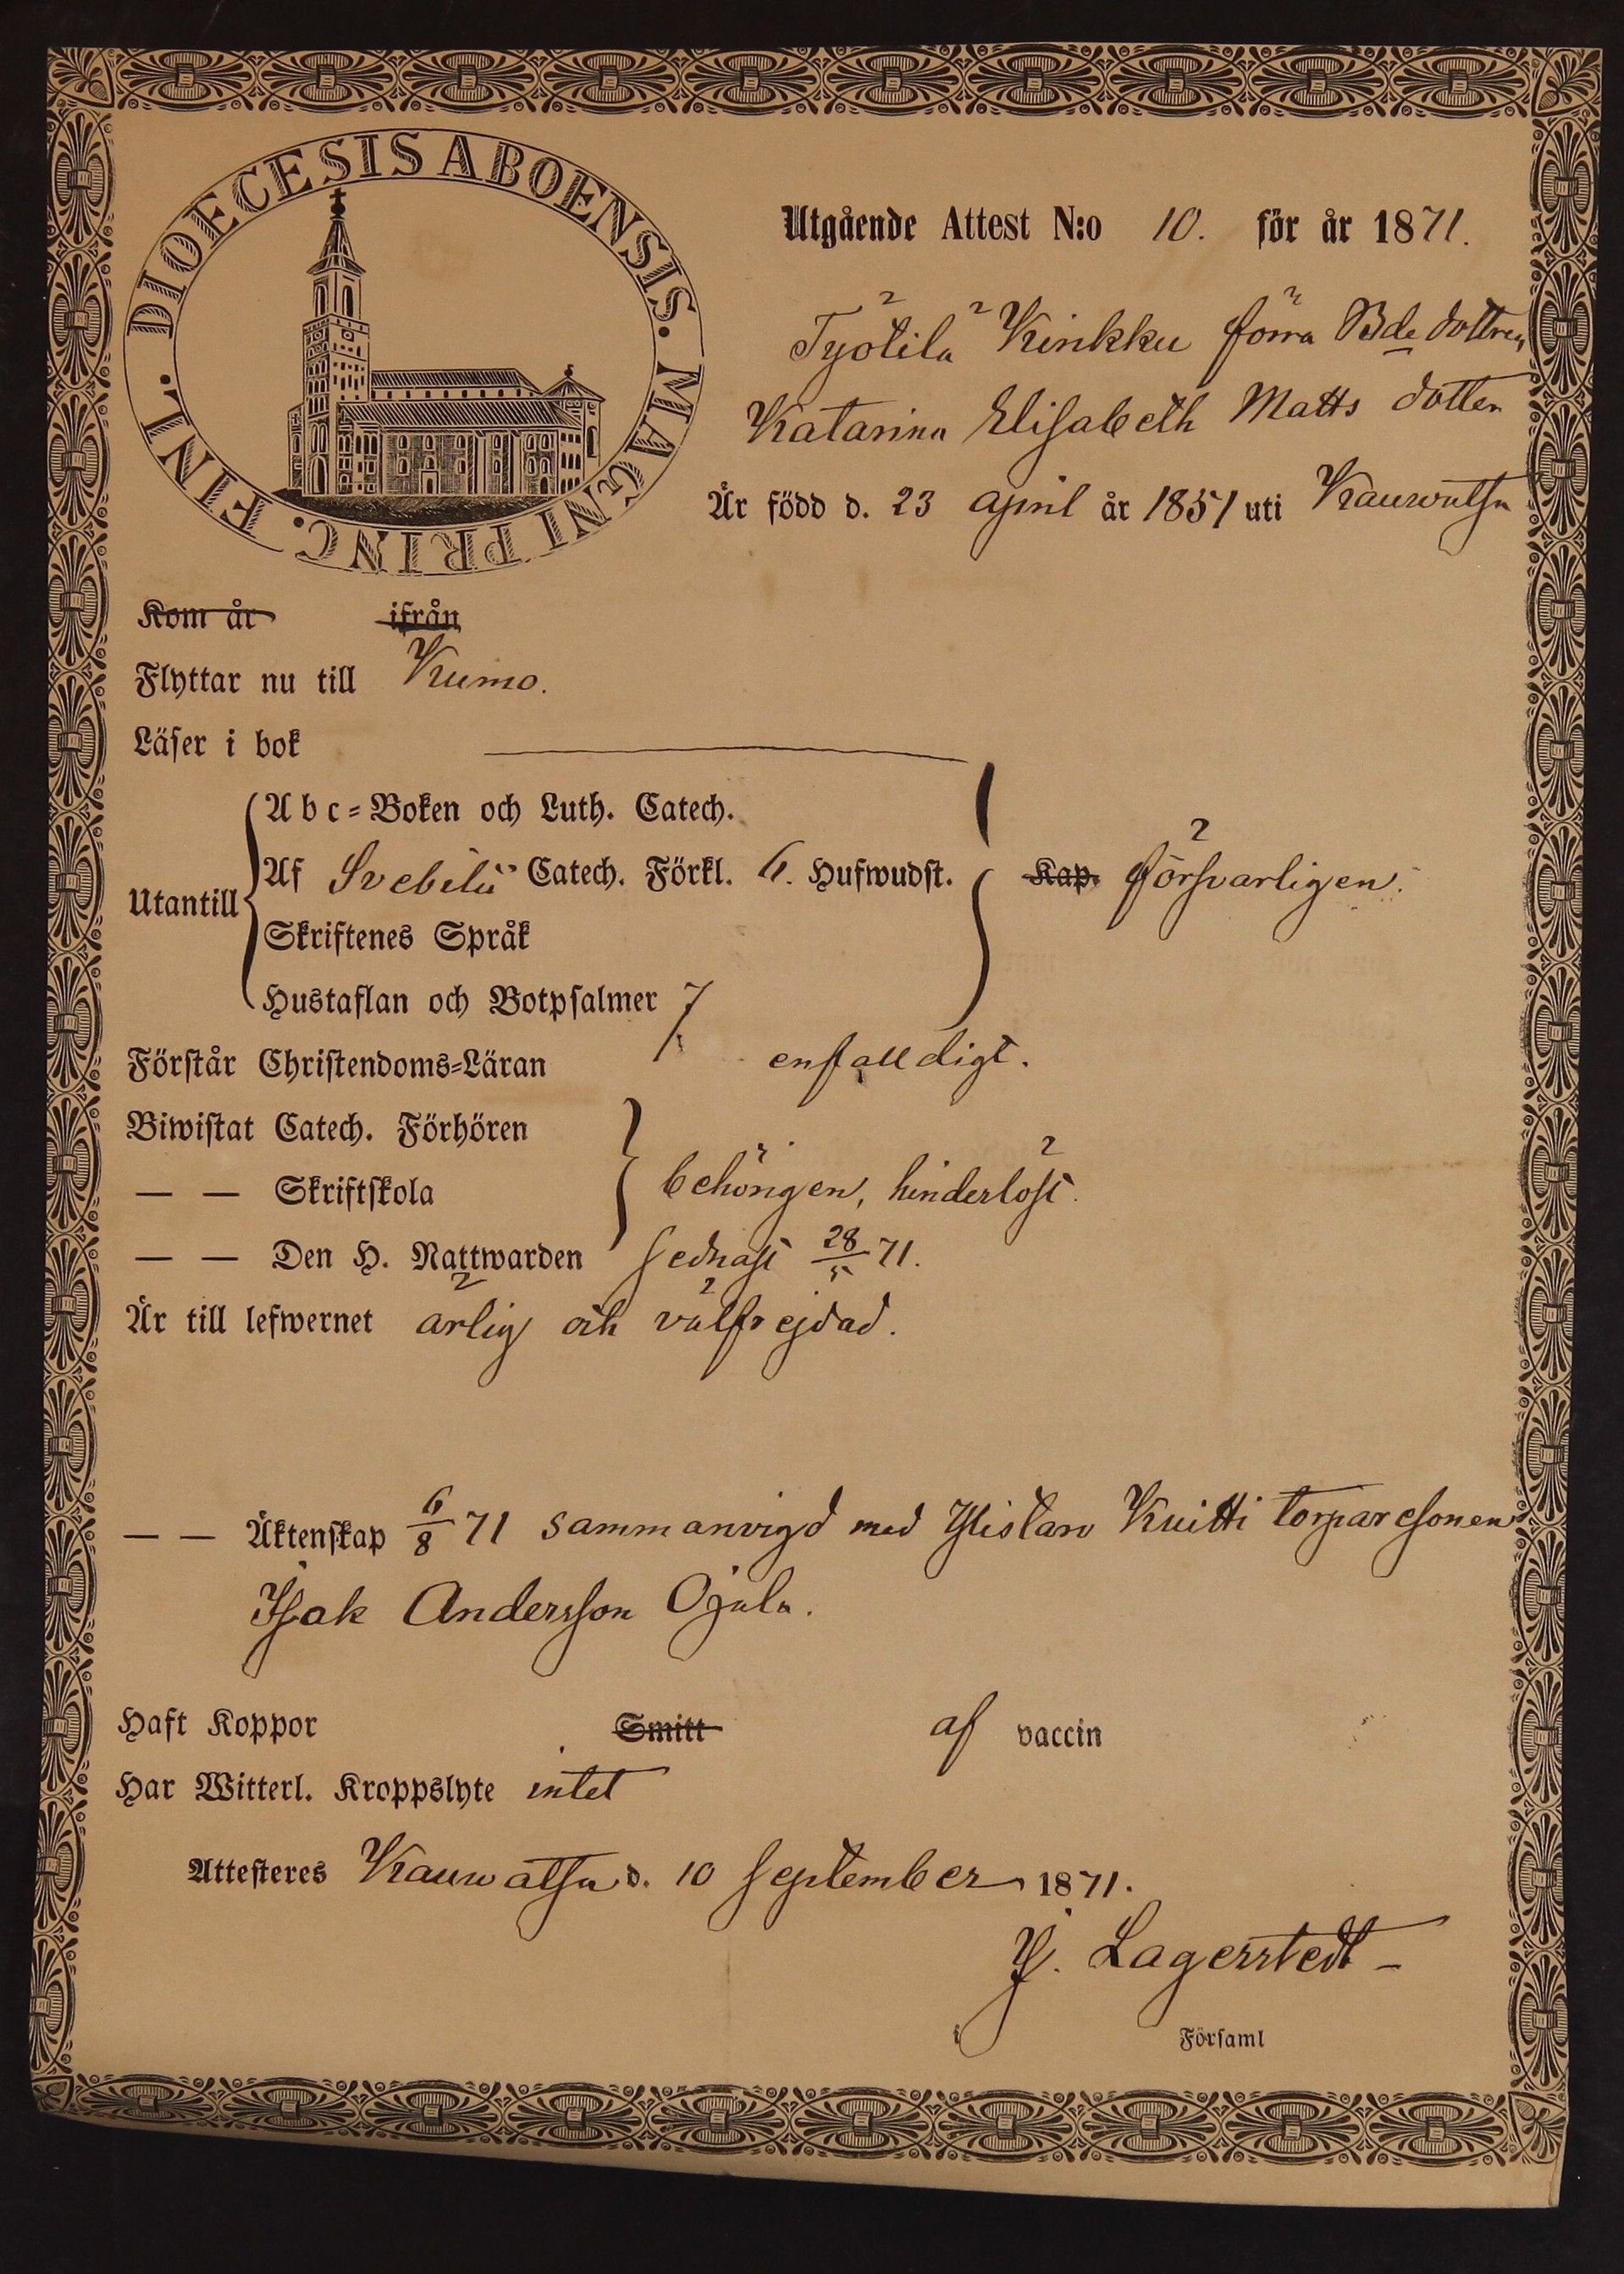 DIOECESIS ABOENSIS. MAGNI PRINC. FINL.
Utgående Attest N:o 10. för år 1871.
Työtilä Kinkku förra Bde dottren
Katarina Elisabeth Matts dotter
Är född d. 23 april år 1851 uti Kauwatsa
Kom år ifrån
Flyttar nu till Kumo.
Läser i bok
Abc-Boken och Luth. Catech.
Utantill
Af Svebelii Catech. Förkl. 6. Hufwudst. Kap. försvarligen.
Skriftenes Språk
Hustaflan och Botpsalmer 7
Förstår Christendoms-Läran enfalldigt.
Biwistat Catech. Förhören
— — Skriftskola behörigen, hinderlöst.
— — Den H. Nattwarden sednast 28/5 71.
Är till lefwernet ärlig och välfrejdad.
— — Äktenskap 6/8 71 sammanvigd med Ylistaro Kuitti torparesonen
Isak Andersson Ojala.
Haft Koppor Smitt af vaccin
Har Witterl. Kroppslyte intet
Attesteres Kauwatsa d. 10 September 1871.
J. Lagerstedt
Församl